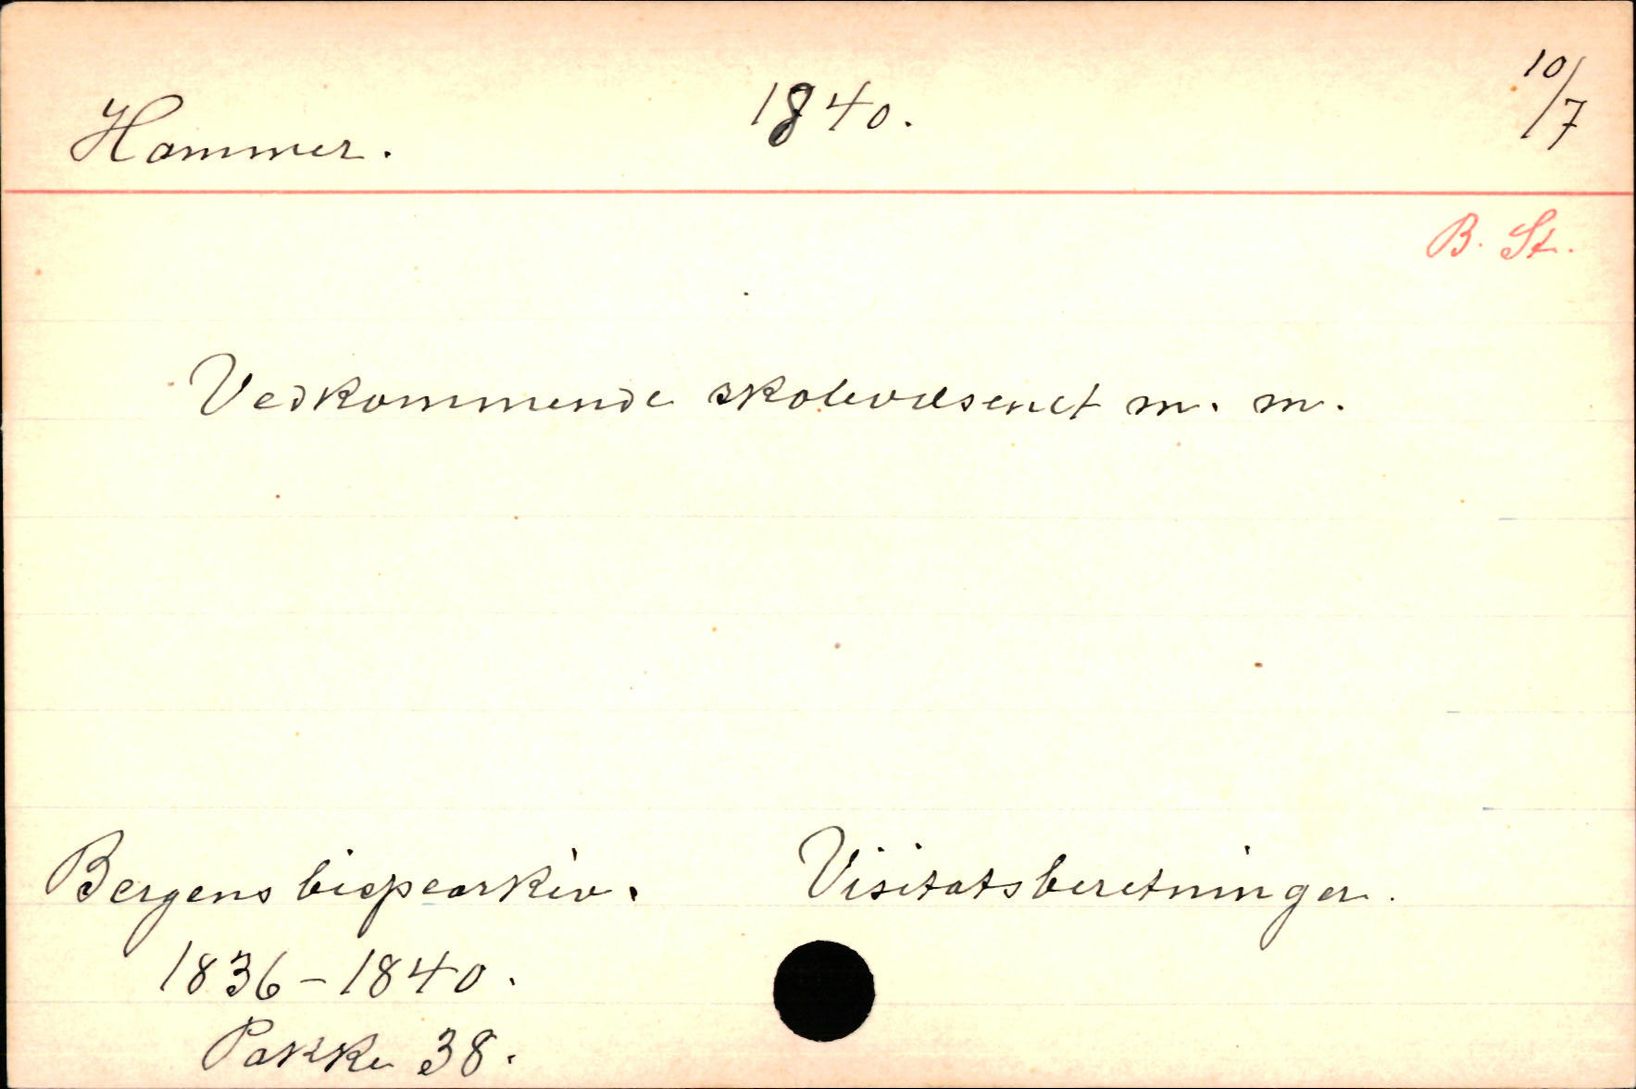 Hammer. 1840. 10/7
B. St.
Vedkommende skolevæsenet m. m.
Bergens bispearkiv. Visitatsberetninger.
1836-1840.
Pakke 38.